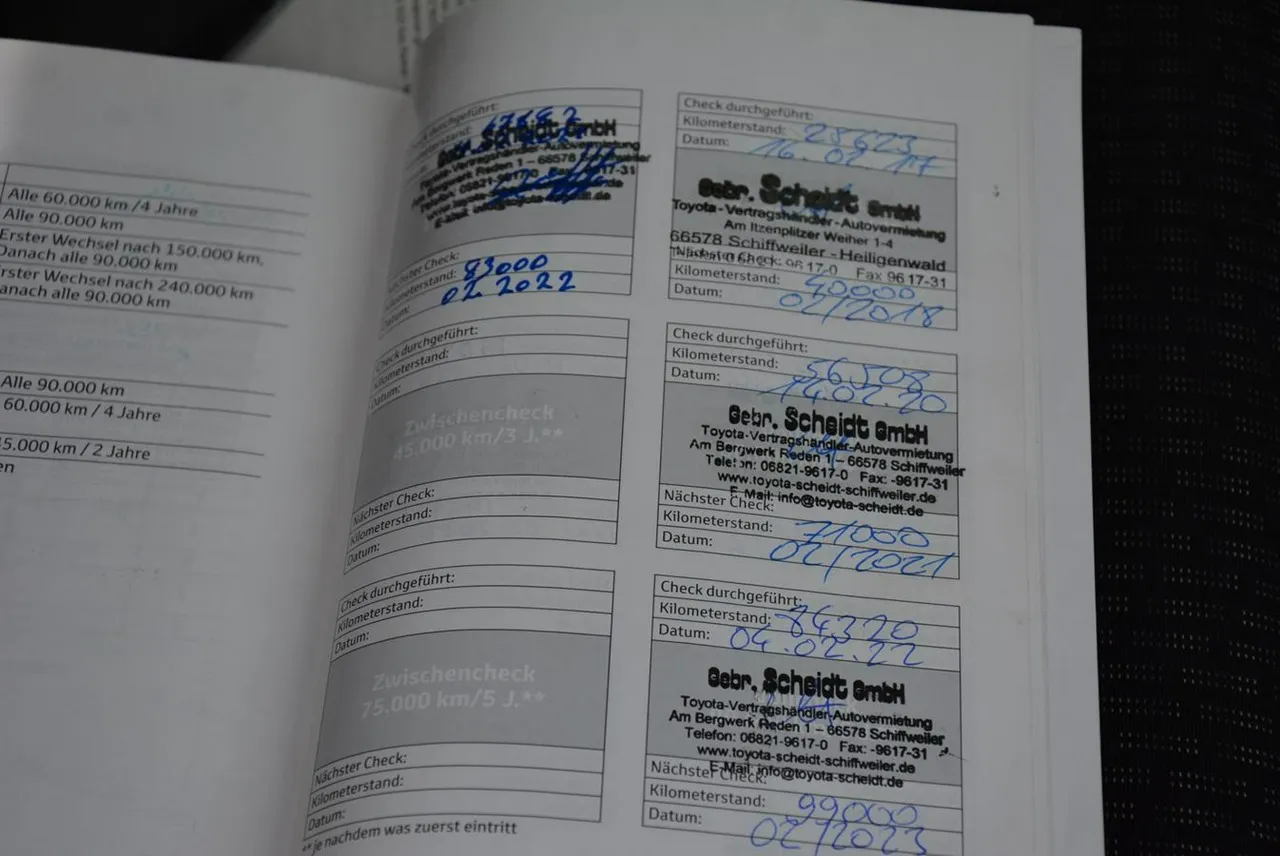 Alle 60.000 km /4 Jahre
Alle 90.000 km
Erster Wechsel nach 150.000 km,
Danach alle 90.000 km
Erster Wechsel nach 240.000 km
Danach alle 90.000 km
Alle 90.000 km
60.000 km / 4 Jahre
45.000 km / 2 Jahre
Check durchgeführt:
Gebr. Scheidt GmbH
Toyota-Vertragshändler-Autovermietung
Am Bergwerk Reden 1 – 66578 Schiffweiler
Telefon: 06821-9617-0 Fax: -9617-31
Nächster Check:
Kilometerstand: 83000
Datum: 02 2022
Check durchgeführt:
Kilometerstand:
Datum:
Zwischencheck
45.000 km/3 J.**
Nächster Check:
Kilometerstand:
Datum:
Check durchgeführt:
Kilometerstand:
Datum:
Zwischencheck
75.000 km/5 J.**
Nächster Check:
Kilometerstand:
Datum:
** je nachdem was zuerst eintritt
Check durchgeführt:
Kilometerstand: 28623
Datum: 16.02.17
Gebr. Scheidt GmbH
Toyota-Vertragshändler-Autovermietung
Am Itzenplitzer Weiher 1-4
66578 Schiffweiler-Heiligenwald
Nächster Check: 96 17-0 Fax 96 17-31
Kilometerstand: 40000
Datum: 02/2018
Check durchgeführt:
Kilometerstand: 56508
Datum: 14.02.20
Gebr. Scheidt GmbH
Toyota-Vertragshändler-Autovermietung
Am Bergwerk Reden 1 – 66578 Schiffweiler
Telefon: 06821-9617-0 Fax: -9617-31
www.toyota-scheidt-schiffweiler.de
E-Mail: info@toyota-scheidt.de
Nächster Check:
Kilometerstand: 71000
Datum: 02/2021
Check durchgeführt:
Kilometerstand: 84320
Datum: 04.02.22
Gebr. Scheidt GmbH
Toyota-Vertragshändler-Autovermietung
Am Bergwerk Reden 1 – 66578 Schiffweiler
Telefon: 06821-9617-0 Fax: -9617-31
www.toyota-scheidt-schiffweiler.de
E-Mail: info@toyota-scheidt.de
Nächster Check:
Kilometerstand: 99000
Datum: 02/2023